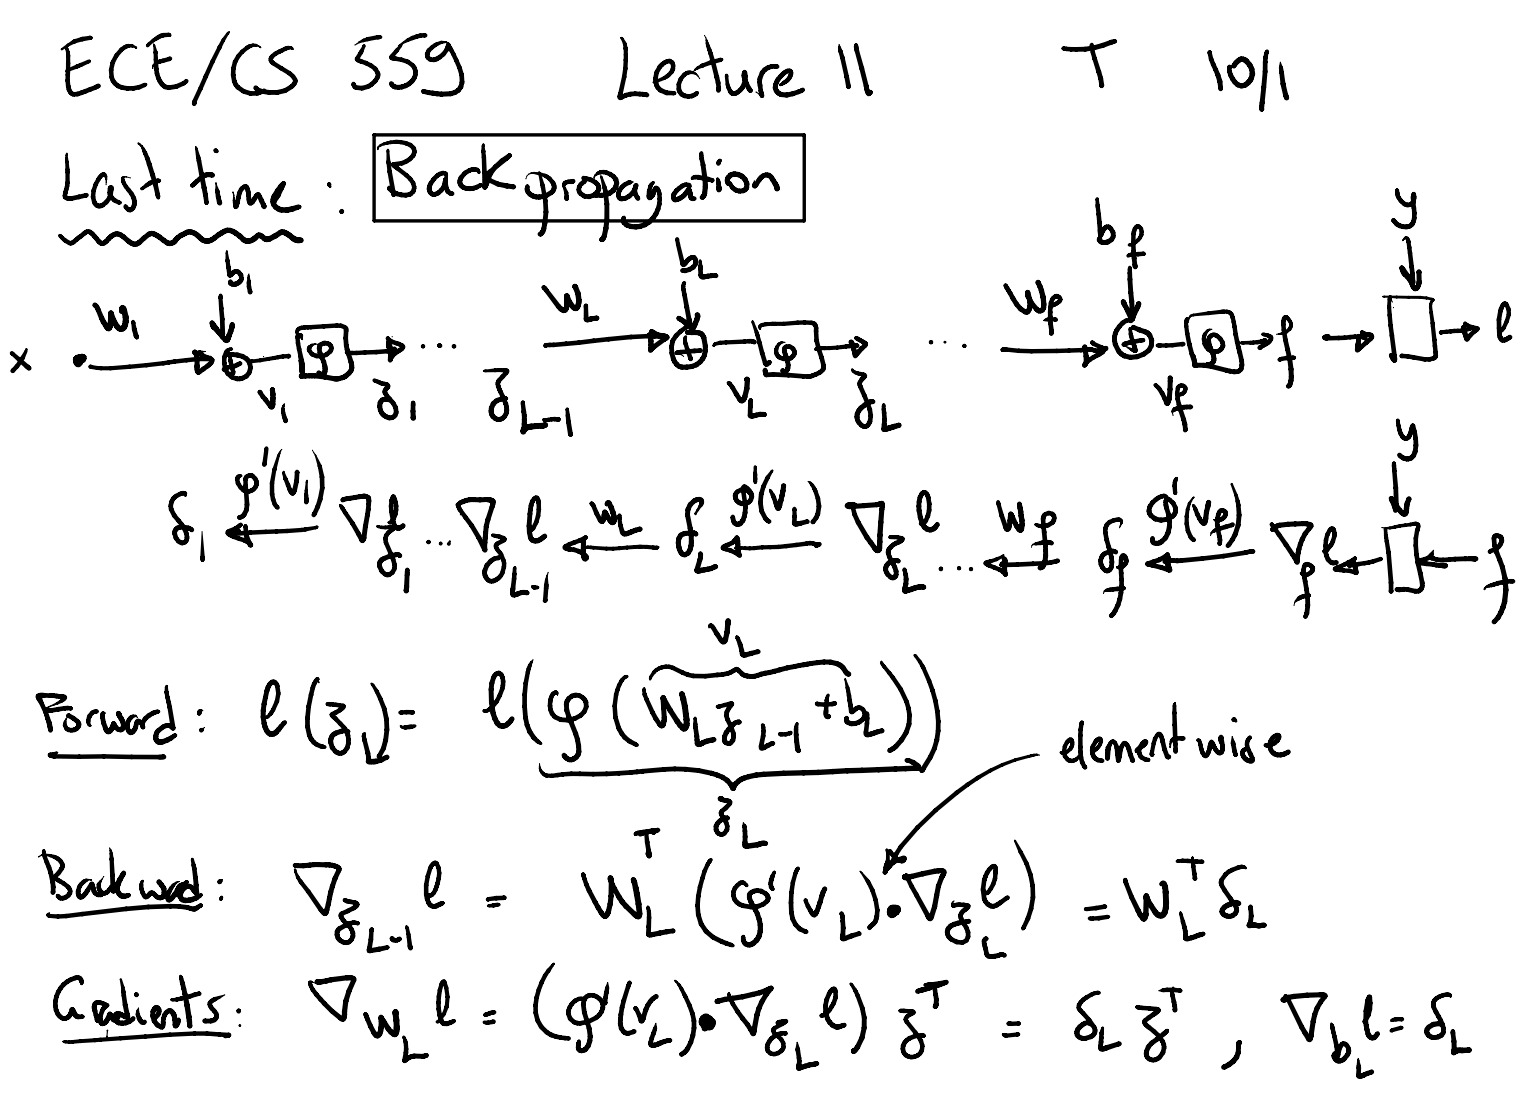 ECE/CS 559 Lecture 11 T 10/1
Last time : Back propagation
b₁ b_L b_f y
x W₁ + φ ... W_L + φ ... W_f + φ f l
v₁ z₁ z_{L-1} v_L z_L v_f
y
δ₁ φ'(v₁) ∇_{z₁} l ... ∇_{z_{L-1}} l W_L δ_L φ'(v_L) ∇_{z_L} l ... W_f δ_f φ'(v_f) ∇_f l f
v_L
Forward : l (z_L) = l(φ(W_L z_{L-1} + b_L))
z_L
elementwise
Backwad : ∇_{z_{L-1}} l = W_L^T (φ'(v_L) • ∇_{z_L} l) = W_L^T δ_L
Gradients : ∇_{W_L} l = (φ'(v_L) • ∇_{z_L} l) z^T = δ_L z^T , ∇_{b_L} l = δ_L